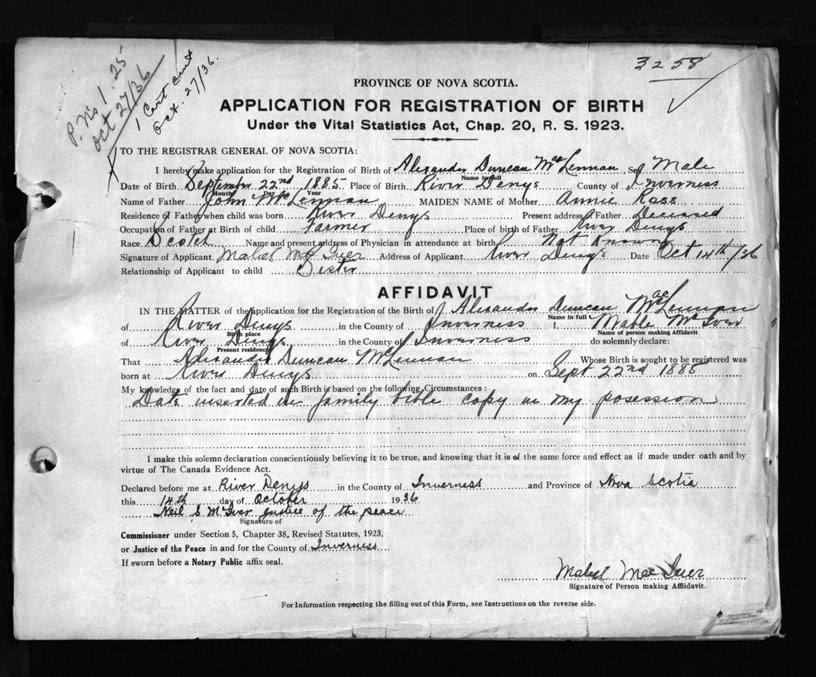 P. No 1.25
Oct 27/36
1 Cert sent
Oct. 27/36.
3258
PROVINCE OF NOVA SCOTIA.
APPLICATION FOR REGISTRATION OF BIRTH
Under the Vital Statistics Act, Chap. 20, R. S. 1923.
TO THE REGISTRAR GENERAL OF NOVA SCOTIA:
I hereby make application for the Registration of Birth of Alexander Duncan McLennan Sex Male
Name in full
Date of Birth September 22nd 1885 Place of Birth River Denys County of Inverness
Month Day Year
Name of Father John McLennan MAIDEN NAME of Mother Annie Ross
Residence of Father when child was born River Denys Present address of Father Deceased
Occupation of Father at Birth of child Farmer Place of birth of Father River Denys
Race Scotch Name and present address of Physician in attendance at birth Not Known
Signature of Applicant Address of Applicant River Denys Date Oct 14th/36
Relationship of Applicant to child Sister
AFFIDAVIT
IN THE MATTER of the application for the Registration of the Birth of Alexander Duncan MacLennan
Name in full
of River Denys in the County of Inverness I, Mable McIver
Birth place Name of person making Affidavit
of River Denys in the County of Inverness do solemnly declare:
Present residence
That Alexander Duncan McLennan Whose Birth is sought to be registered was
born at River Denys on Sept 22nd 1885
My knowledge of the fact and date of such Birth is based on the following Circumstances:
Date inserted in family bible copy in my posession
I make this solemn declaration conscientiously believing it to be true, and knowing that it is of the same force and effect as if made under oath and by
virtue of The Canada Evidence Act.
Declared before me at River Denys in the County of Inverness and Province of Nova Scotia
this 14th day of October 1936
Neil S McIver justice of the peace
Signature of
Commissioner under Section 5, Chapter 38, Revised Statutes, 1923,
or Justice of the Peace in and for the County of Inverness
If sworn before a Notary Public affix seal.
Mabel MacIver
Signature of Person making Affidavit.
For Information respecting the filling out of this Form, see Instructions on the reverse side.